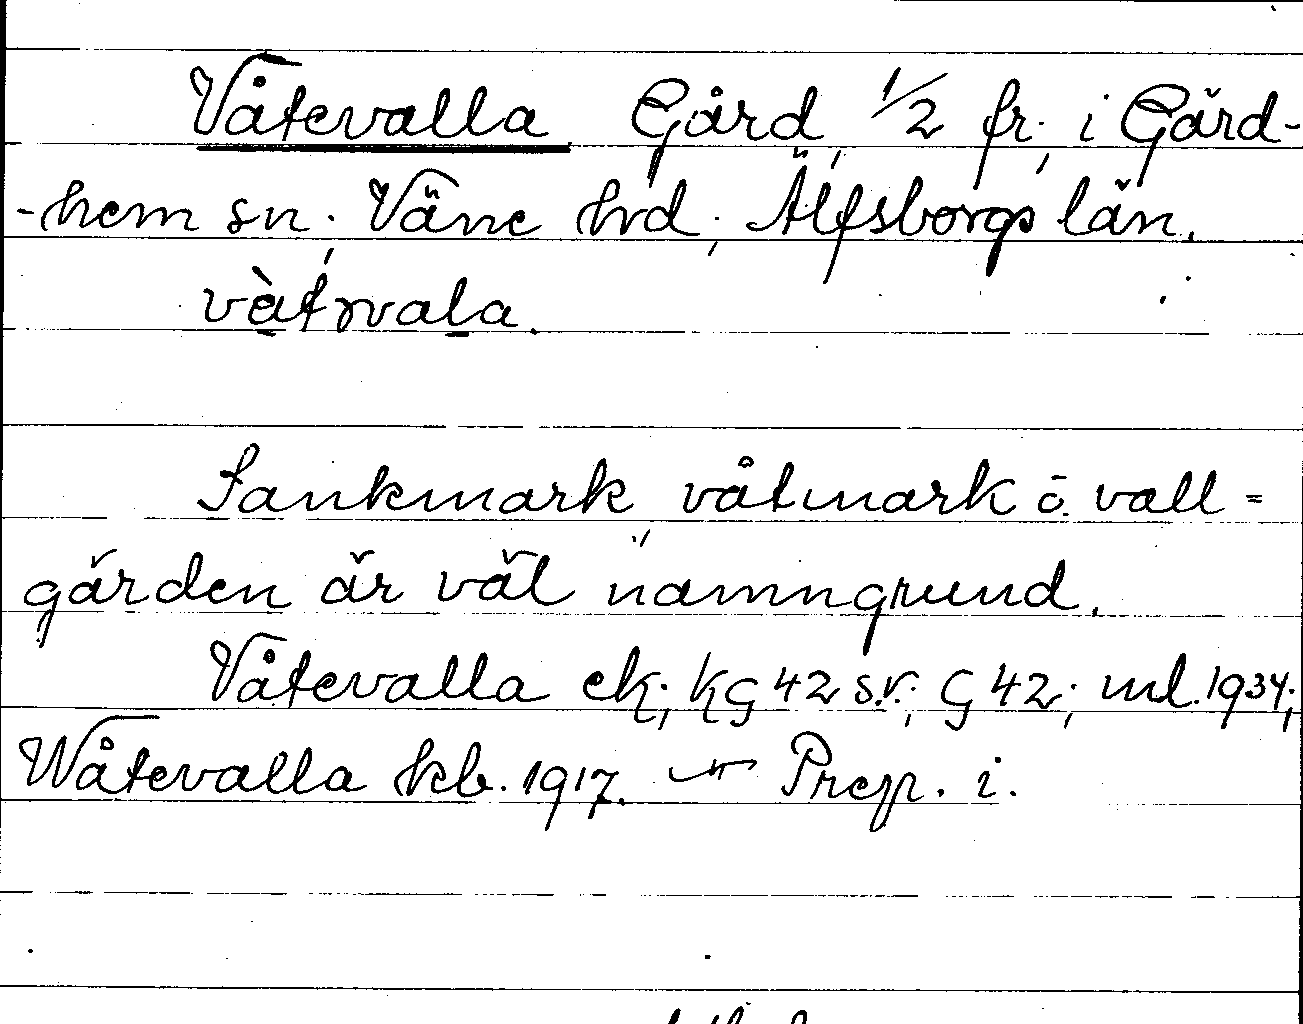 Våtevalla Gård, 1/2 fr., i Gärd-
-hem sn., Väne hrd., Älfsborgs län.
vàtrvala.
Sankmark, våtmark o. vall=
gärden är väl namngrund.
Våtevalla ek.; KG 42 s.v.; G 42; ml. 1934;
Wåtevalla kb. 1917. — Prep. i.